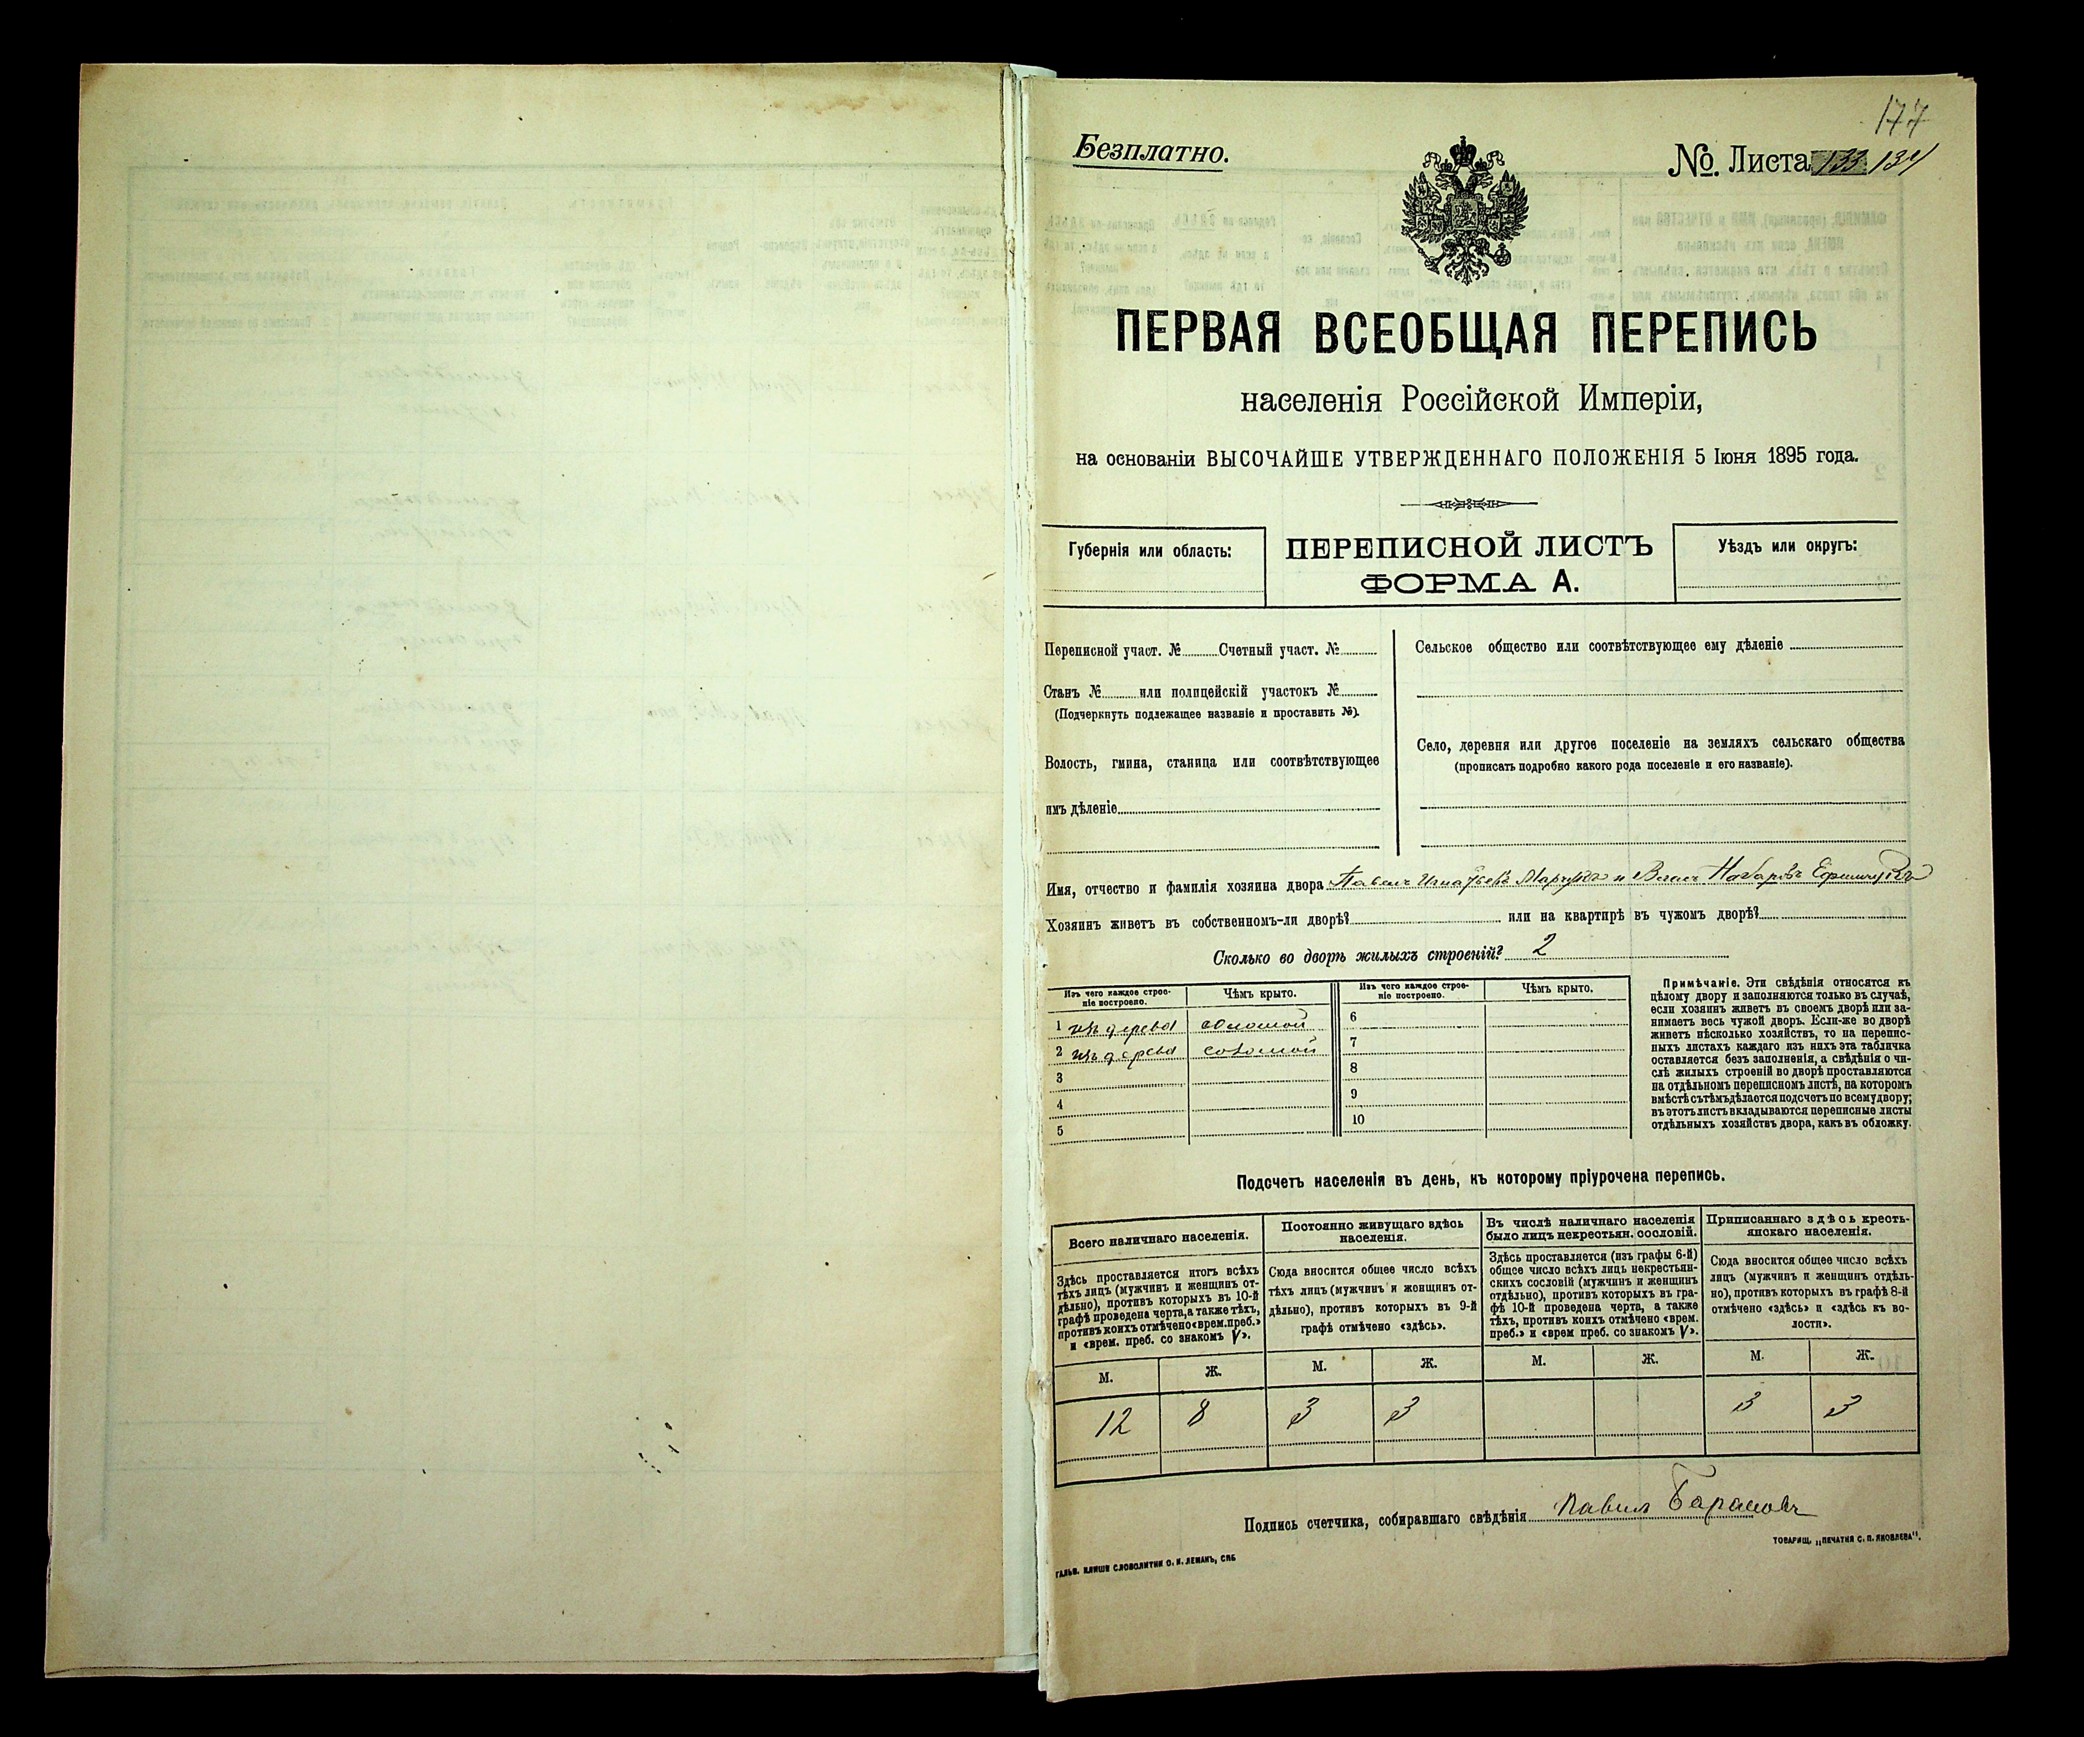 177
Безплатно.
№. Листа 133 134
ПЕРВАЯ ВСЕОБЩАЯ ПЕРЕПИСЬ
населенія Россійской Имперіи,
на основаніи ВЫСОЧАЙШЕ УТВЕРЖДЕННАГО ПОЛОЖЕНІЯ 5 Іюня 1895 года.
Губернія или область:
ПЕРЕПИСНОЙ ЛИСТЪ
ФОРМА А.
Уѣздъ или округъ:
Переписной участ. № Счетный участ. №
Станъ № или полицейскій участокъ №
(Подчеркнуть подлежащее названіе и проставить №).
Волость, гмина, станица или соотвѣтствующее
имъ дѣленіе
Сельское общество или соотвѣтствующее ему дѣленіе
Село, деревня или другое поселеніе на земляхъ сельскаго общества
(прописать подробно какого рода поселеніе и его названіе).
Имя, отчество и фамилія хозяина двора Павелъ Игнатьевъ и Власъ
Хозяинъ живетъ въ собственномъ-ли дворѣ? или на квартирѣ въ чужомъ дворѣ?
Сколько во дворѣ жилыхъ строеній? 2
Изъ чего каждое строе-
ніе построено.
Чѣмъ крыто.
Изъ чего каждое строе-
ніе построено.
Чѣмъ крыто.
1 изъ дерева соломой
2 изъ дерева соломой
3
4
5
6
7
8
9
10
Примѣчаніе. Эти свѣдѣнія относятся къ
цѣлому двору и заполняются только въ случаѣ,
если хозяинъ живетъ въ своемъ дворѣ или за-
нимаетъ весь чужой дворъ. Если-же во дворѣ
живетъ нѣсколько хозяйствъ, то на перепис-
ныхъ листахъ каждаго изъ нихъ эта табличка
оставляется безъ заполненія, а свѣдѣнія о чи-
слѣ жилыхъ строеній во дворѣ проставляются
на отдѣльномъ переписномъ листѣ, на которомъ
вмѣстѣ съ тѣмъ дѣлается подсчетъ по всему двору;
въ этотъ листъ вкладываются переписные листы
отдѣльныхъ хозяйствъ двора, какъ въ обложку.
Подсчетъ населенія въ день, къ которому пріурочена перепись.
Всего наличнаго населенія.
Здѣсь проставляется итогъ всѣхъ
тѣхъ лицъ (мужчинъ и женщинъ от-
дѣльно), противъ которыхъ въ 10-й
графѣ проведена черта, а также тѣхъ,
противъ коихъ отмѣчено «врем. преб.»
и «врем. преб. со знакомъ V».
Постоянно живущаго здѣсь
населенія.
Сюда вносится общее число всѣхъ
тѣхъ лицъ (мужчинъ и женщинъ от-
дѣльно), противъ которыхъ въ 9-й
графѣ отмѣчено «здѣсь».
Въ числѣ наличнаго населенія
было лицъ некрестьян. сословій.
Здѣсь проставляется (изъ графы 6-й)
общее число всѣхъ лицъ некрестьян-
скихъ сословій (мужчинъ и женщинъ
отдѣльно), противъ которыхъ въ гра-
фѣ 10-й проведена черта, а также
тѣхъ, противъ коихъ отмѣчено «врем.
преб.» и «врем преб. со знакомъ V».
Приписаннаго здѣсь кресть-
янскаго населенія.
Сюда вносится общее число всѣхъ
лицъ (мужчинъ и женщинъ отдѣль-
но), противъ которыхъ въ графѣ 8-й
отмѣчено «здѣсь» и «здѣсь къ во-
лости».
М. Ж. М. Ж. М. Ж. М. Ж.
12 8 3 3 3 3
Подпись счетчика, собиравшаго свѣдѣнія Павилъ Барановъ
ГАЛЬВ. КЛИШИ СЛОВОЛИТНИ О. И. ЛЕМАНЪ, СПБ
ТОВАРИЩ. „ПЕЧАТНЯ С. П. ЯКОВЛЕВА".